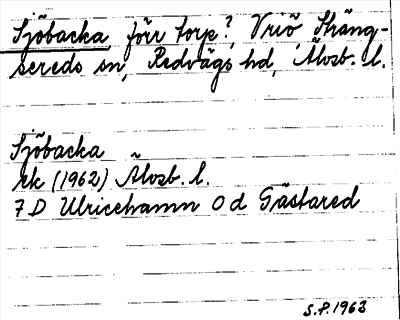 Sjöbacka förr torp?, Vriö, Sträng-
sereds sn, Redvägs hd, Älvsb. l.
Sjöbacka
ek (1962) Älvsb. l.
7 D Ulricehamn 0 d Gästared
S.P. 1963